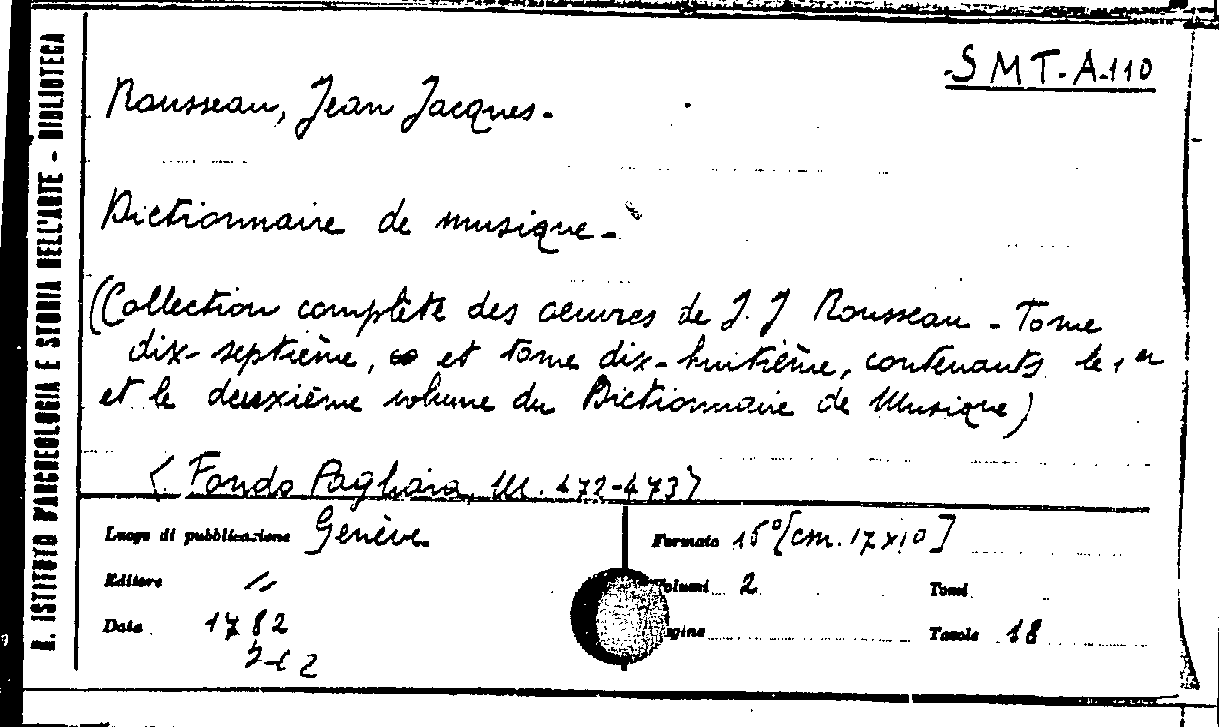 R. ISTITUTO D'ARCHEOLOGIA E STORIA DELL'ARTE - BIBLIOTECA
SMT-A-110
Rousseau, Jean Jacques.
Dictionnaire de musique.
(Collection complète des oeuvres de J. J Rousseau - Tome
dix-septième, et tome dix-huitième, contenants le 1er
et le deuxième volume du Dictionnaire de Musique)
(Fondo Pagliara, M. 472-473)
Luogo di pubblicazione Genève.
Formato 16° [cm. 17x10]
Editore //
Volumi 2
Tomi
Data 1782
Pagine
Tavole 18